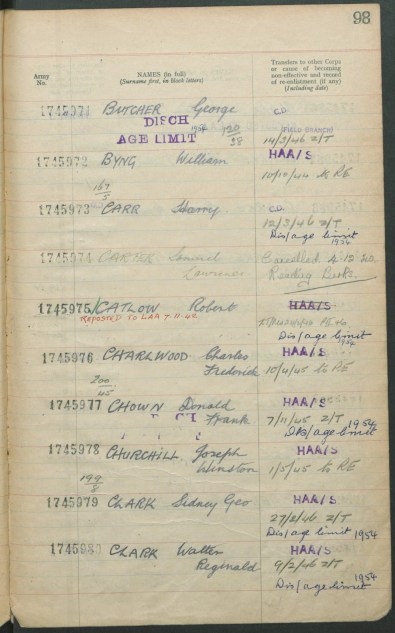 98
Army
No.
NAMES (in full)
(Surname first, in block letters)
Transfers to other Corps
or cause of becoming
non-effective and record
of re-enlistment (if any)
(Including date)
1745971 BUTCHER George C.D.
DISCH 1954 120/38 (FIELD BRANCH)
AGE LIMIT 14/3/46 Z/T
1745972 BYNG William HAA/S
10/10/44 to RE
167/5
1745973 CARR Harry C.D.
12/3/46 Z/T
Dis/age limit
1954
1745974 CARTER Samuel Cancelled 4.12.40.
Lawrence Reading Berks.
1745975 CATLOW Robert HAA/S
REPOSTED TO LAA 7-11-42
Dis/age limit
1954
1745976 CHARLWOOD Charles HAA/S
Frederick 10/4/45 to RE
200/45
1745977 CHOWN Donald HAA/S
Frank 7/11/45 Z/T 1954
Dis/age limit
1745978 CHURCHILL Joseph HAA/S
Winston 1/5/45 to RE
199/8
1745979 CLARK Sidney Geo HAA/S
27/2/46 Z/T
Dis/age limit 1954
1745980 CLARK Walter HAA/S
Reginald 9/2/46 Z/T
1954
Dis/age limit